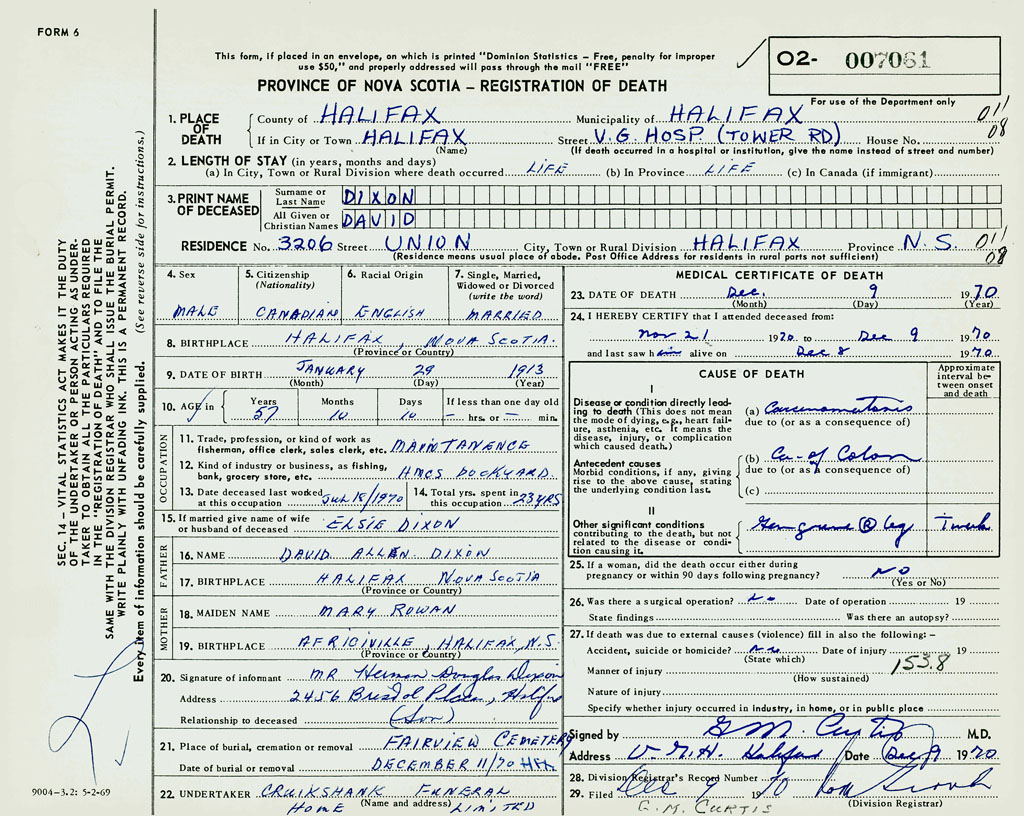 FORM 6
This form, if placed in an envelope, on which is printed "Dominion Statistics – Free, penalty for improper
use $50," and properly addressed will pass through the mail "FREE"
O2- 007061
PROVINCE OF NOVA SCOTIA – REGISTRATION OF DEATH
For use of the Department only
1. PLACE OF DEATH
County of HALIFAX Municipality of HALIFAX 011
If in City or Town HALIFAX Street V.G. HOSP. (TOWER RD) House No. 08
(Name) (If death occurred in a hospital or institution, give the name instead of street and number)
2. LENGTH OF STAY (in years, months and days)
(a) In City, Town or Rural Division where death occurred LIFE (b) In Province LIFE (c) In Canada (if immigrant)
3. PRINT NAME OF DECEASED
Surname or Last Name DIXON
All Given or Christian Names DAVID
RESIDENCE No. 3206 Street UNION City, Town or Rural Division HALIFAX Province N.S. 011
(Residence means usual place of abode. Post Office Address for residents in rural parts not sufficient) 08
4. Sex
MALE
5. Citizenship
(Nationality)
CANADIAN
6. Racial Origin
ENGLISH
7. Single, Married,
Widowed or Divorced
(write the word)
MARRIED
8. BIRTHPLACE HALIFAX, NOVA SCOTIA.
(Province or Country)
9. DATE OF BIRTH JANUARY 29 1913
(Month) (Day) (Year)
10. AGE in
Years Months Days If less than one day old
57 10 10 – hrs. or – min.
OCCUPATION
11. Trade, profession, or kind of work as
fisherman, office clerk, sales clerk, etc. MAINTANENCE
12. Kind of industry or business, as fishing,
bank, grocery store, etc. HMCS DOCKYARD.
13. Date deceased last worked
at this occupation JUL 18/1970
14. Total yrs. spent in
this occupation 23 YRS
15. If married give name of wife
or husband of deceased ELSIE DIXON
FATHER
16. NAME DAVID ALLEN DIXON
17. BIRTHPLACE HALIFAX NOVA SCOTIA
(Province or Country)
MOTHER
18. MAIDEN NAME MARY ROWAN
19. BIRTHPLACE AFRICIVILLE, HALIFAX, N.S.
(Province or Country)
20. Signature of informant MR Herman Douglas Dixon
Address 2456 Bristol Place, Halifax
Relationship to deceased (Son)
21. Place of burial, cremation or removal FAIRVIEW CEMETERY
Date of burial or removal DECEMBER 11/70 HFX
22. UNDERTAKER CRUIKSHANK FUNERAL
(Name and address)
HOME LIMITED
MEDICAL CERTIFICATE OF DEATH
23. DATE OF DEATH Dec. 9 1970
(Month) (Day) (Year)
24. I HEREBY CERTIFY that I attended deceased from:
Nov 21 1970 to Dec 9 1970
and last saw him alive on Dec 8 1970
CAUSE OF DEATH
Approximate
interval be-
tween onset
and death
I
Disease or condition directly lead-
ing to death (This does not mean
the mode of dying, e.g., heart fail-
ure, asthenia, etc. It means the
disease, injury, or complication
which caused death.
(a) Carcinomatosis
due to (or as a consequence of)
Antecedent causes
Morbid conditions, if any, giving
rise to the above cause, stating
the underlying condition last.
(b) Ca- of Colon
due to (or as a consequence of)
(c)
II
Other significant conditions
contributing to the death, but not
related to the disease or condi-
tion causing it.
Gangrene (R) leg
25. If a woman, did the death occur either during
pregnancy or within 90 days following pregnancy? NO
(Yes or No)
26. Was there a surgical operation? No Date of operation 19
State findings Was there an autopsy?
27. If death was due to external causes (violence) fill in also the following: –
Accident, suicide or homicide? No Date of injury 19
(State which)
Manner of injury 153.8
(How sustained)
Nature of injury
Specify whether injury occurred in industry, in home, or in public place
Signed by G M Curtis M.D.
Address V.G.H. Halifax Date Dec 9 1970
28. Division Registrar's Record Number
29. Filed Dec 9 1970
(Division Registrar)
G. M. CURTIS
SEC. 14 – VITAL STATISTICS ACT MAKES IT THE DUTY
OF THE UNDERTAKER OR PERSON ACTING AS UNDER-
TAKER TO OBTAIN ALL THE PARTICULARS REQUIRED
IN THE "REGISTRATION OF DEATH" AND TO FILE THE
SAME WITH THE DIVISION REGISTRAR WHO SHALL ISSUE THE BURIAL PERMIT.
WRITE PLAINLY WITH UNFADING INK. THIS IS A PERMANENT RECORD.
Every item of information should be carefully supplied. (See reverse side for instructions.)
9004-3.2: 5-2-69